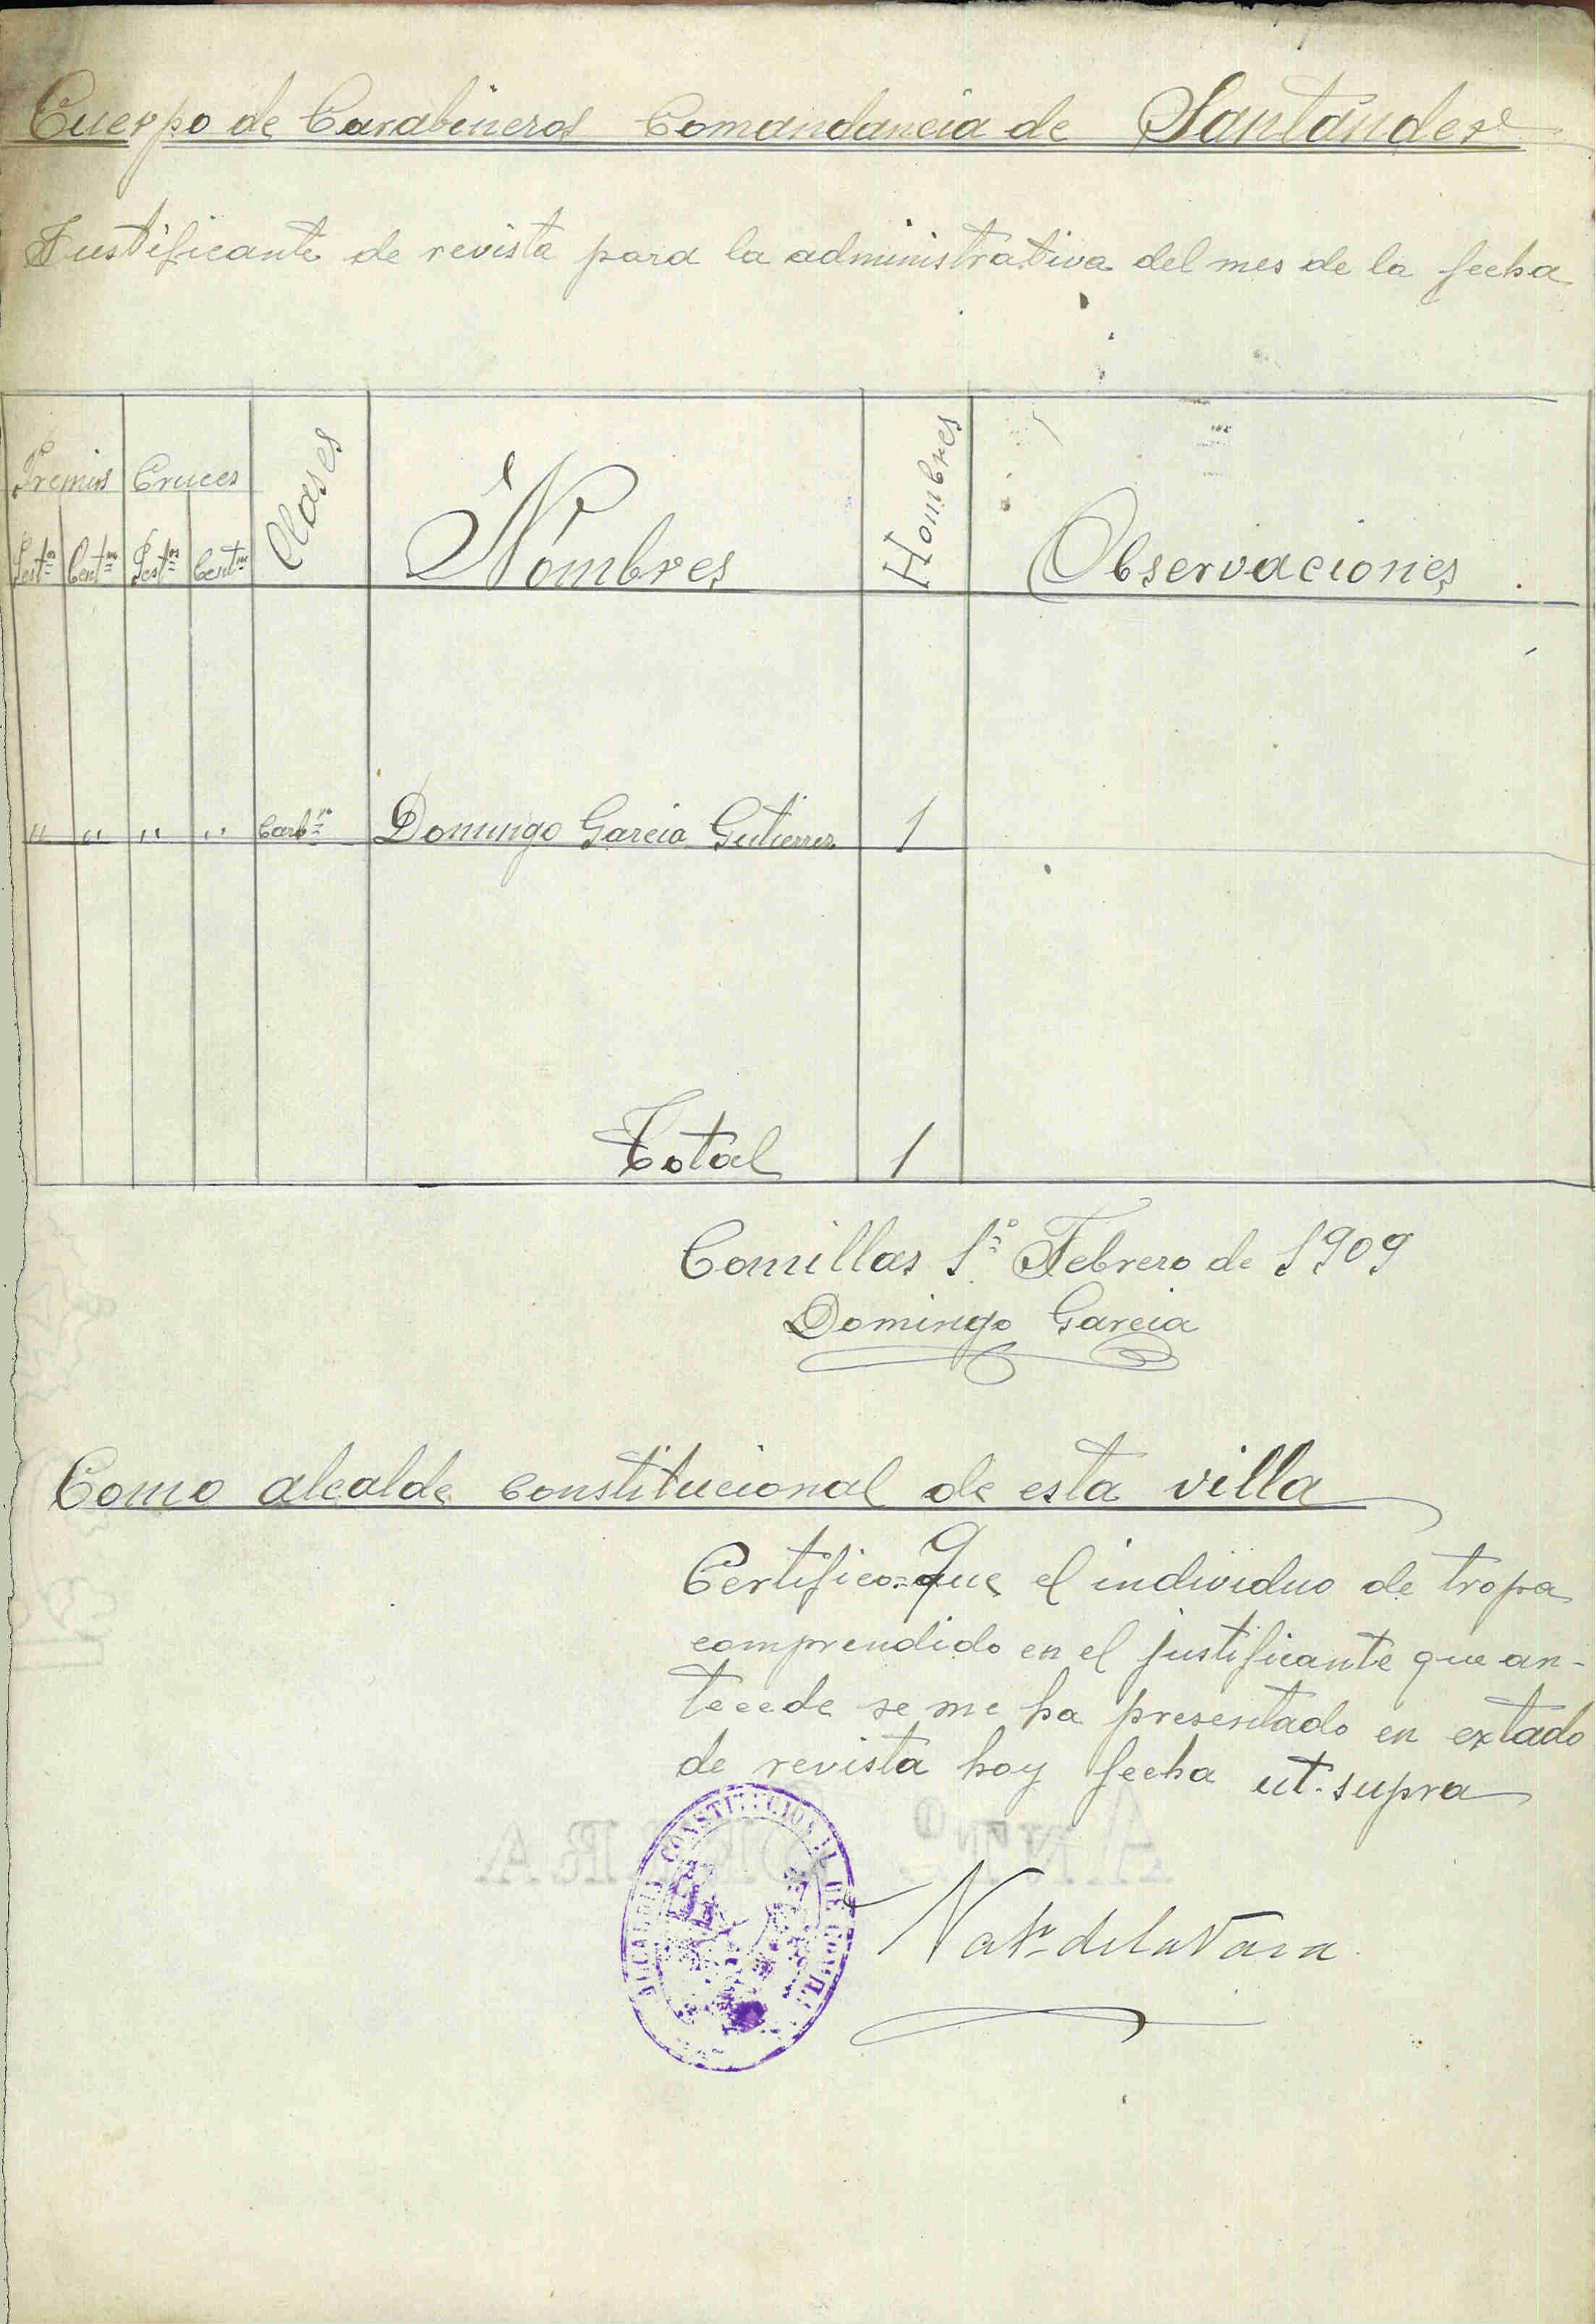 Cuerpo de Carabineros Comandancia de Santander
Justificante de revista para la administrativa del mes de la fecha
Premios Cruces Clases Nombres Hombres Observaciones
Pest.as Cent.os Pest.as Cent.os
" " " " Carb.ro Domingo Garcia Gutierrez 1
Total 1
Comillas 1.º Febrero de 1909
Domingo Garcia
Como alcalde constitucional de esta villa
Certifico=que el individuo de tropa
comprendido en el justificante que an-
tecede se me ha presentado en extado
de revista hoy fecha ut. supra
CONSTITUCIONAL DE
de la Vara